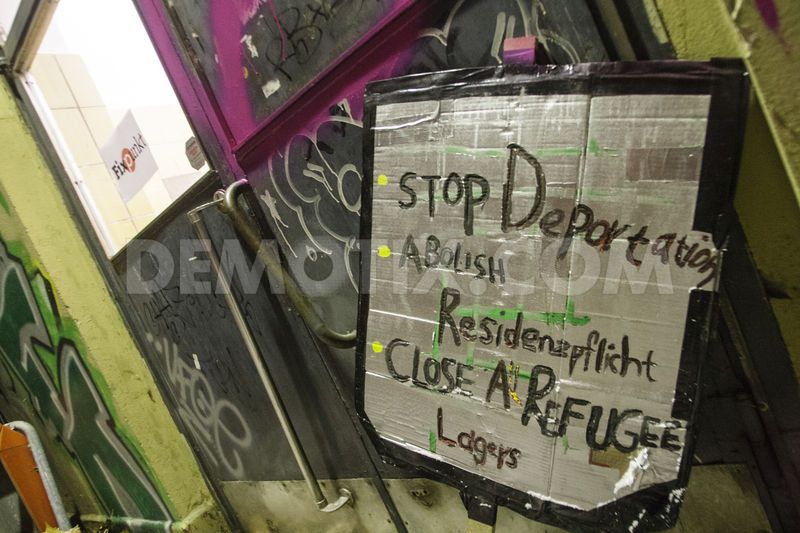 Fixpunkt
STOP Deportation
ABOLISH
Residenzpflicht
CLOSE All REFUGEE
Lagers
DEMOTIX.COM